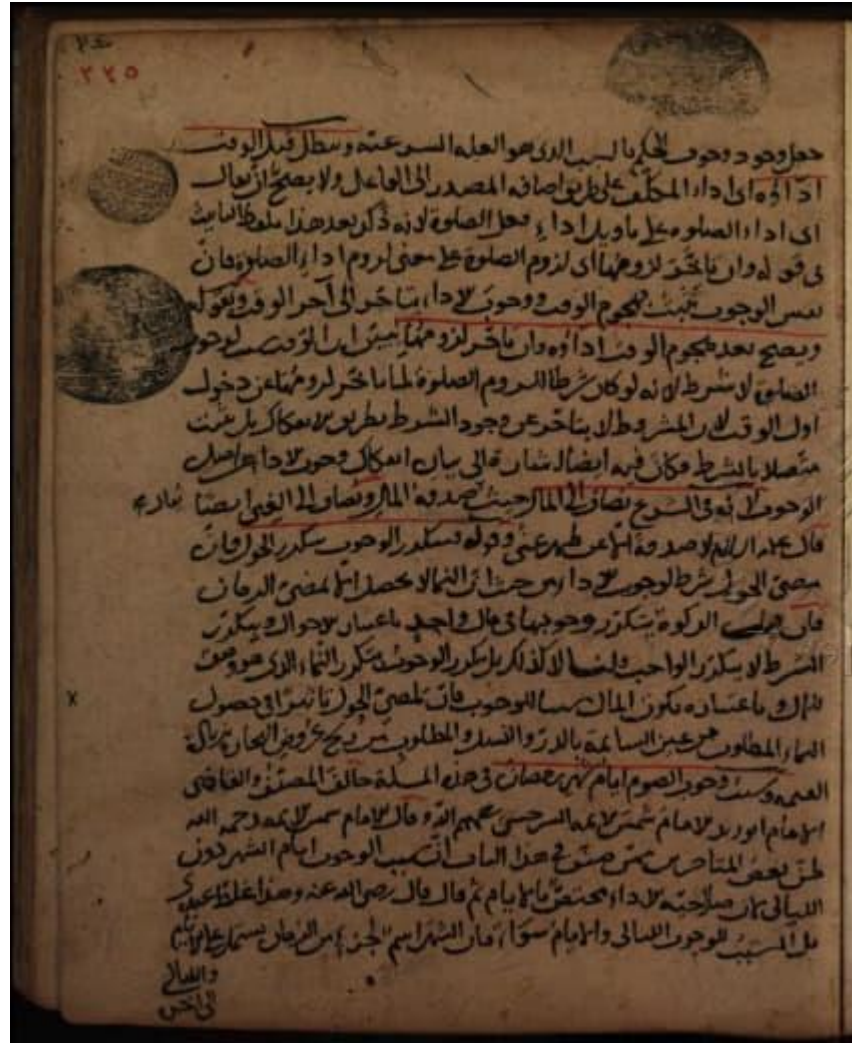 ٣٣٥
جعل وجود وجوب الحكم بالسبب الذى هو العلة الشرعية ويبطل قبل الوقت
اداؤه اى اداء المكلف على طريق اضافة المصدر الى الفاعل ولا يصح ان يقال
اى اداء الصلوة على تاويل اداء فعل الصلوة لانه ذكر بعد هذا بلفظ التانيث
فى قوله وان تاخر لزومها اى لزوم الصلوة على معنى لزوم اداء الصلوة فان
نفس الوجوب يثبت بهجوم الوقت ووجوب الاداء يتاخر الى آخر الوقت وبقوله
ويصح بعد هجوم الوقت اداؤه وان تاخر لزومها يتبين ان الوقت سبب لوجوب
الصلوة لا شرط لانه لو كان شرطا للزوم الصلوة لما تاخر لزومها عن دخول
اول الوقت لان المشروط لا يتاخر عن وجود الشرط بطريق الانفكاك بل يثبت
متصلا بالشرط وكان فيه ايضا اشارة الى بيان انفكاك وجوب الاداء عن اصل
الوجوب لانه فى الشرع يضاف الى المال حيث صدقة المال ويضاف الى الغنى ايضا
قال عليه السلام لا صدقة الا عن ظهر غنى وقوله ويتكرر الوجوب بتكرر الحول فان
مضى الحول شرط لوجوب الاداء من حيث ان النما لا يحصل الا بمضى الزمان
فان قيل الزكوة يتكرر وجوبها فى مال واحد باعتبار الاحوال وبتكرر
الشرط لا يتكرر الواجب ولنا لا كذلك بل يتكرر الوجوب بتكرر النماء الذى هو وصف
للمال و باعتباره يكون المال سببا للوجوب فان لمضى الحول تاثيرا فى حصول
النماء المطلوب من عين السائمة بالدر والنسل والمطلوب من ربح عروض التجارة بزيادة
القيمة وسبب وجوب الصوم ايام شهر رمضان فى هذه المسئلة خالف المصنف والقاضى
الامام ابو زيد الامام شمس الائمة السرخسى رحمهم الله وقال الامام شمس الائمة رحمه الله
ظن بعض المتاخرين ممن صنف فى هذا الباب ان سبب الوجوب ايام الشهر دون
الليالى لان صلاحية الاداء مختص بالايام ثم قال قال رضى الله عنه وهذا غلط عندى
بل السبب للوجوب الليالى والايام سواء فان الشهر اسم لجزء من الزمان يشتمل على الايام
والليالى